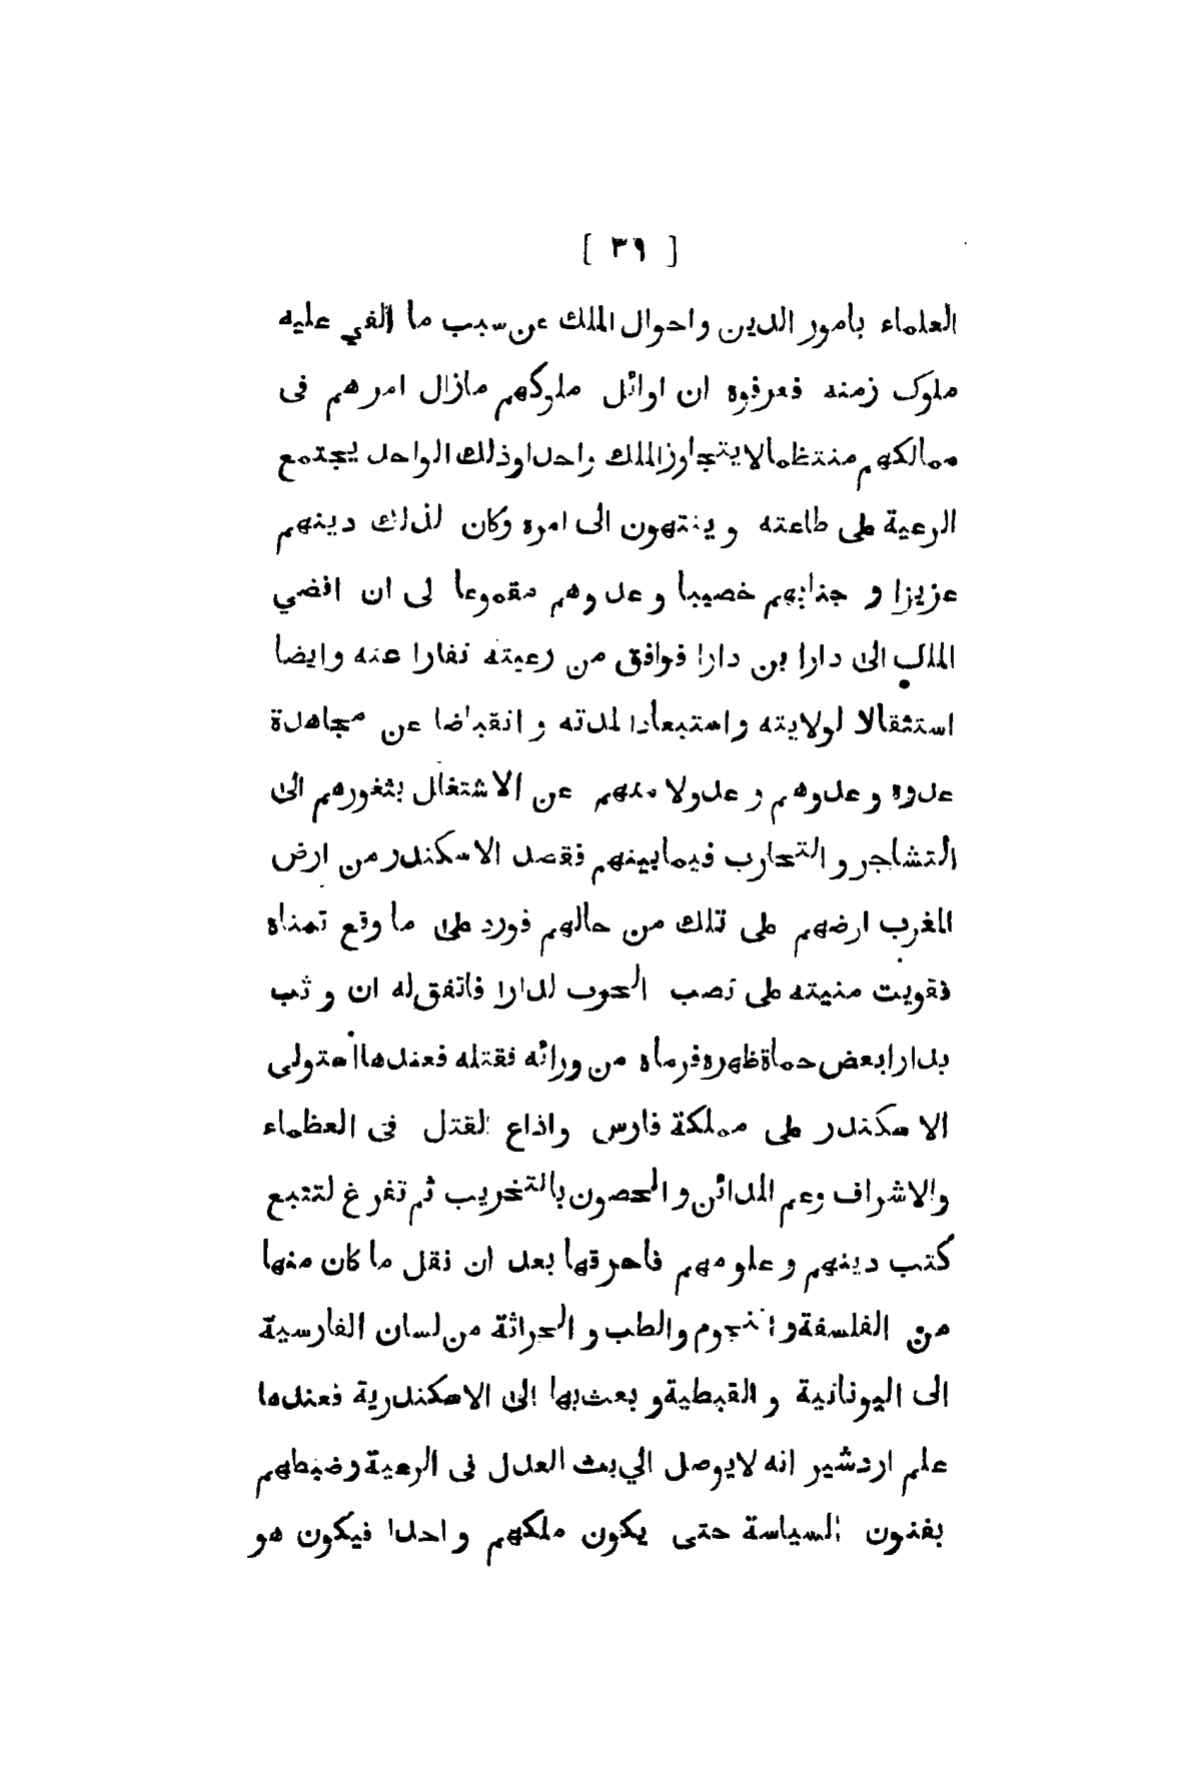 [ ٣٩ ]
العلماء بامور الدين واحوال الملك عن سبب ما الفي عليه
ملوك زمنه فعرفوه ان اوائل ملوكهم مازال امرهم فى
ممالكهم منتظما لا يتجاوز الملك واحدا وذلك الواحد يجتمع
الرعية على طاعته و ينتهون الى امره وكان لذلك دينهم
عزيزا و جنابهم خصيبا و عدوهم مقموعا لى ان افضي
الملك الى دارا بن دارا فوافق من رعيته نفارا عنه وايضا
استثقالا لولايته واستبعادا لمدته و انقباضا عن مجاهدة
عدوه و عدوهم و عدولا منهم عن الاشتغال بثغورهم الى
التشاجر و التحارب فيما بينهم فقصد الاسكندر من ارض
المغرب ارضهم على تلك من حالهم فورد على ما وقع تمناه
فقويت منيته على نصب الحوب لدارا فاتفق له ان و ثب
بدارا بعض حماة ظهره فرماه من ورائه فقتله فعندها استولى
الاسكندر على مملكة فارس واذاع القتل فى العظماء
والاشراف وعم المدائن و الحصون بالتخريب ثم تفرغ لتتبع
كتب دينهم و علومهم فاحرقها بعد ان نقل ما كان منها
من الفلسفة و النجوم والطب و الحراثة من لسان الفارسية
الى اليونانية و القبطية و بعث بها الى الاسكندرية فعندها
علم اردشير انه لا يوصل الي بث العدل فى الرعية وضبطهم
بفنون السياسة حتى يكون ملكهم واحدا فيكون هو